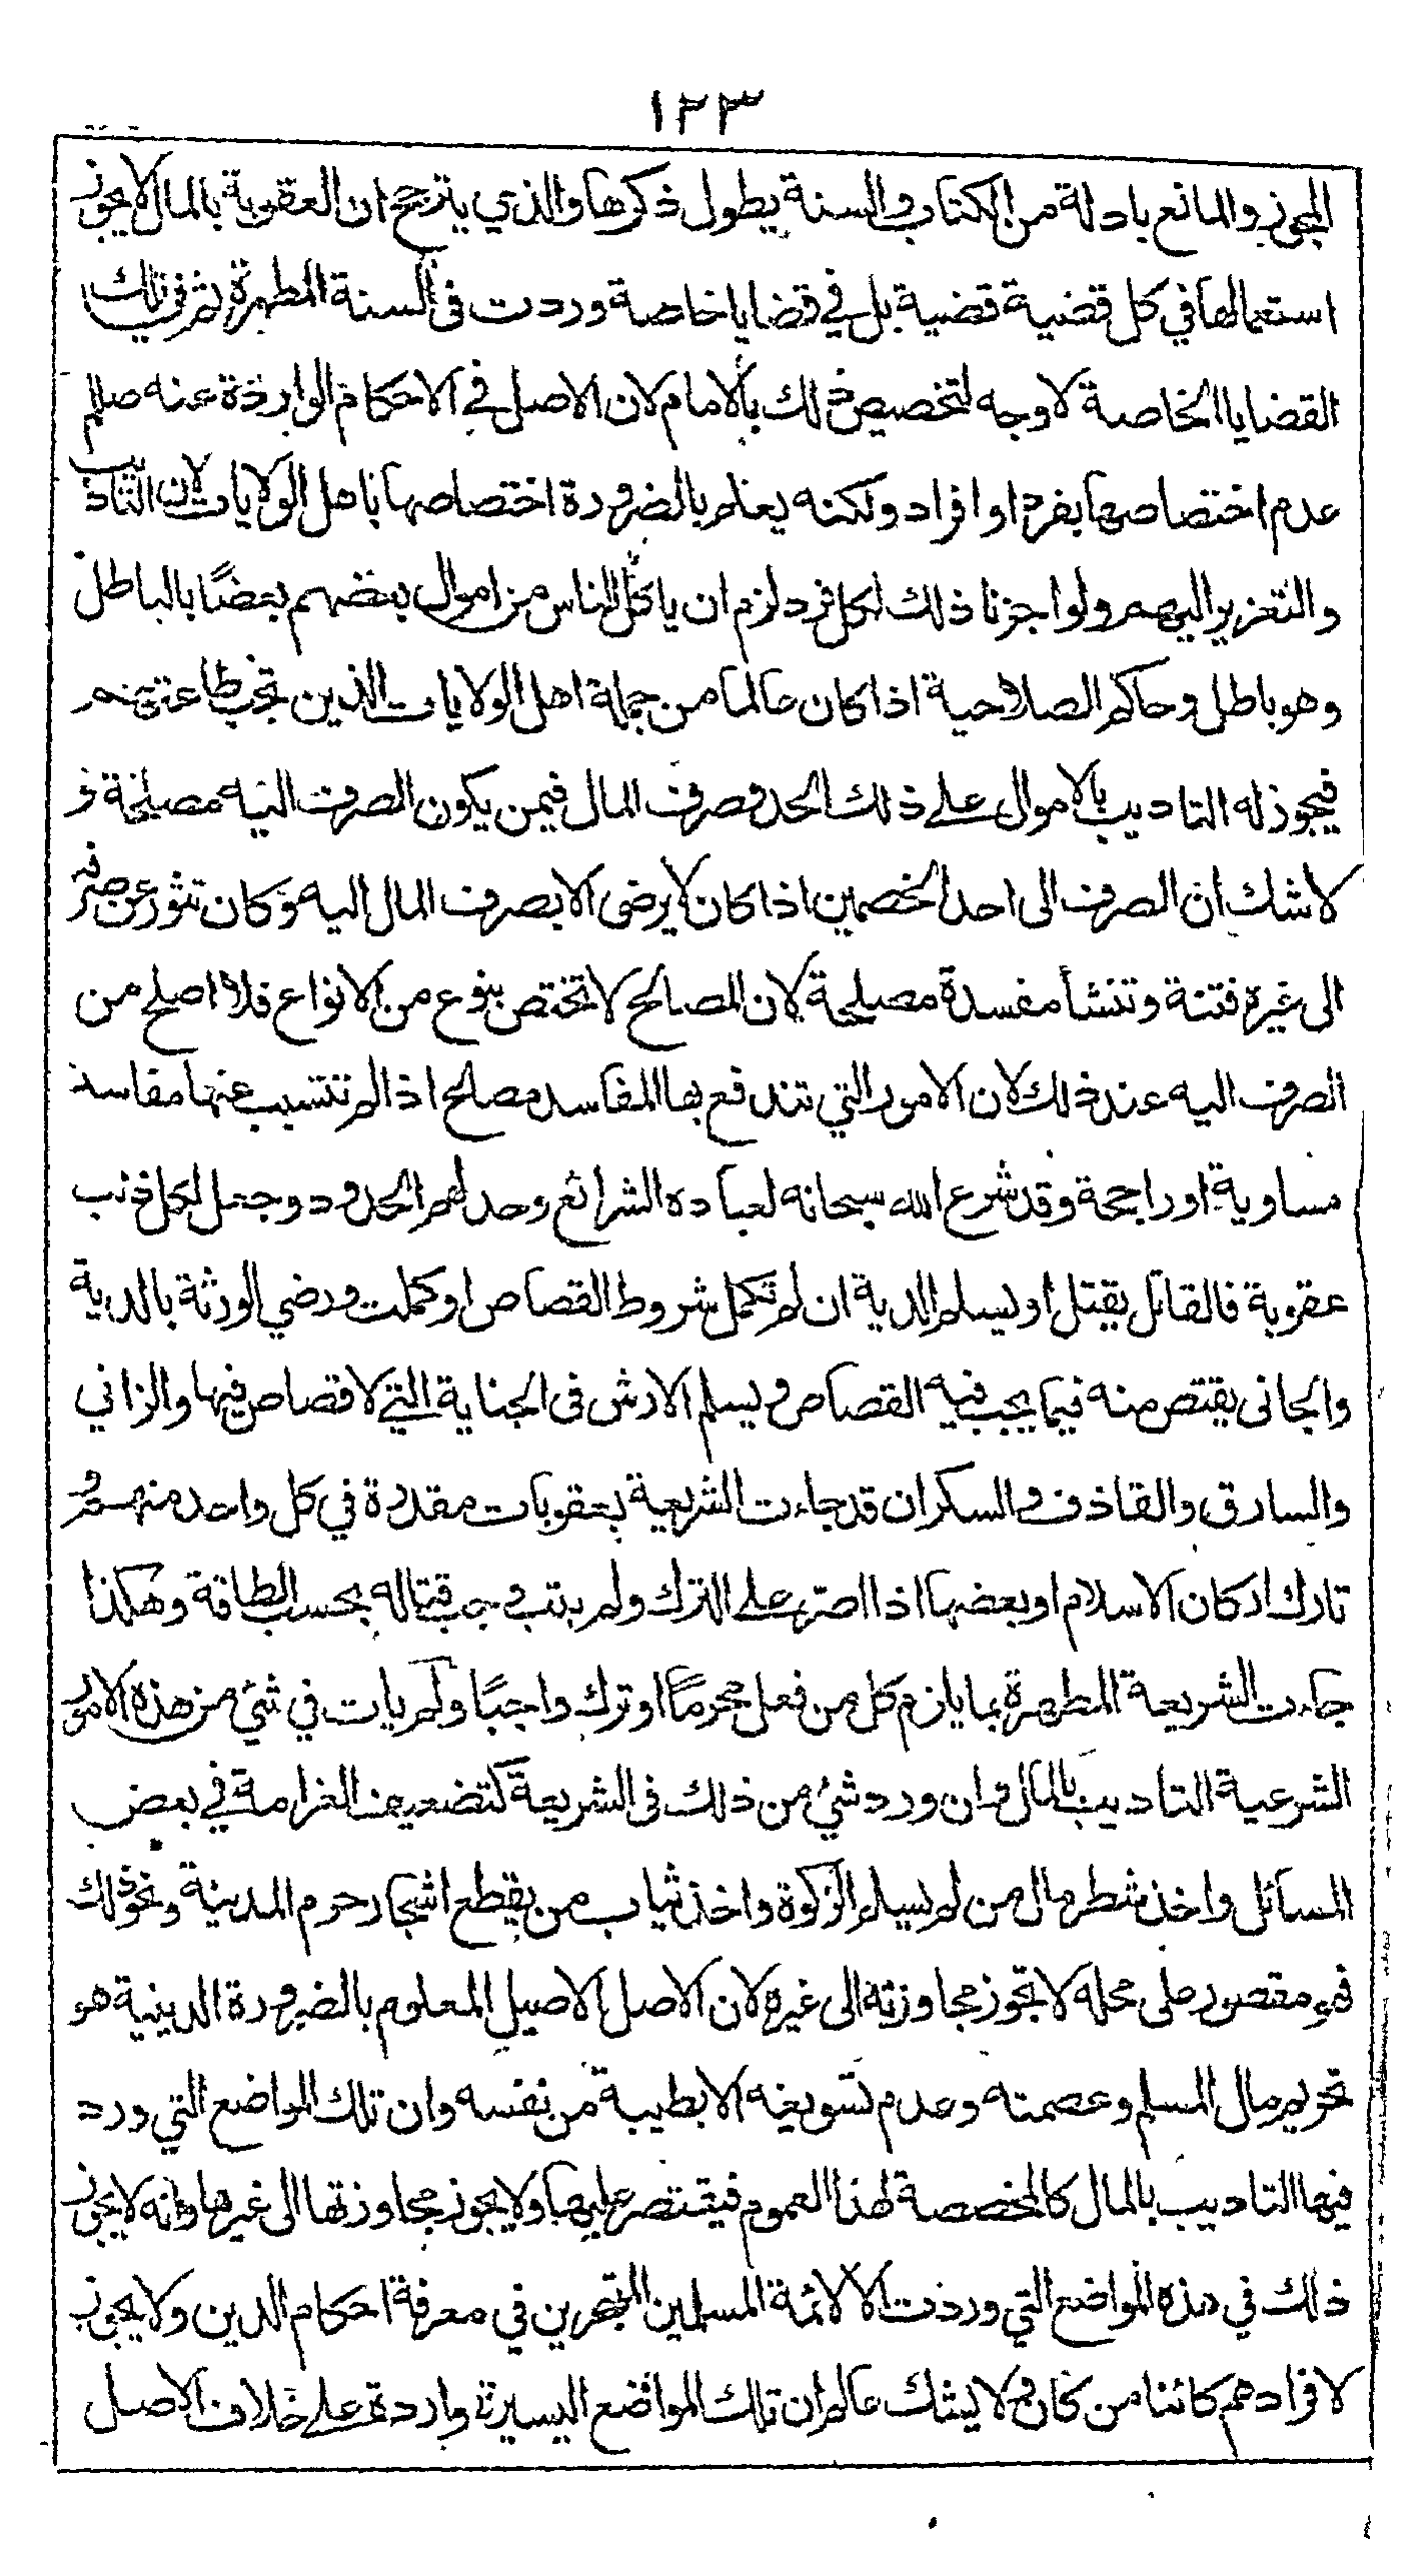 ١٢٣
المجوز والمانع بادلة من الكتاب والسنة يطول ذكرها والذي يترجح ان العقوبة بالمال لا يجوز
استعمالها في كل قضية قضية بل في قضايا خاصة وردت فى السنة المطهرة ثم في تلك
القضايا الخاصة لا وجه لتخصيص ذلك بالامام لان الاصل في الاحكام الواردة عنه صللم
عدم اختصاصها بفرد او افراد ولكنه يعلم بالضرورة اختصاصها باهل الولايات لان التاديب
والتعزير اليهم ولو اجزنا ذلك لكل فرد لزم ان ياكل الناس من اموال بعضهم بعضًا بالباطل
وهو باطل وحاكم الصلاحية اذا كان عالما من جملة اهل الولايات الذين تجب طاعتهم
فيجوز له التاديب بالاموال على ذلك الحد وصرف المال فيمن يكون الصرف اليه مصلحة و
لا شك ان الصرف الى احد الخصمين اذا كان لا يرضى الا بصرف المال اليه وكان تثور عن صرفه
الى غيره فتنة وتنشأ مفسدة مصلحة لان المصالح لا تختص بنوع من الانواع فلا اصلح من
الصرف اليه عند ذلك لان الامور التي تندفع بها المفاسد مصالح اذا لم تتسبب عنها مفاسد
مساوية او راجحة وقد شرع الله سبحانه لعباده الشرائع وحد لهم الحدود وجعل لكل ذنب
عقوبة فالقاتل يقتل او يسلم الدية ان لم تكمل شروط القصاص او كملت ورضي الورثة بالدية
والجانى يقتص منه فيما يجب فيه القصاص ويسلم الارش فى الجناية التي لا قصاص فيها والزاني
والسارق والقاذف والسكران قد جاءت الشريعة بعقوبات مقدرة في كل واحد منهم و
تارك اركان الاسلام او بعضها اذا اصر على الترك ولم يتب وجب قتاله بحسب الطاقة وهكذا
جاءت الشريعة المطهرة بما يلزم كل من فعل محرمًا او ترك واجبًا ولم يات في شئ من هذه الامور
الشرعية التاديب بالمال وان ورد شئ من ذلك فى الشريعة كتضعيف الغرامة في بعض
المسائل واخذ شطر مال من لم يسلم الزكوة واخذ ثياب من يقطع اشجار حرم المدينة ونحو ذلك
فهو مقصور على محله لا تجوز مجاوزته الى غيره لان الاصل الاصيل المعلوم بالضرورة الدينية هو
تحريم مال المسلم وعصمته وعدم تسويغه الا بطيبة من نفسه وان تلك المواضع التي ورد
فيها التاديب بالمال كالمخصصة لهذا العموم فيقتصر عليها ولا يجوز مجاوزتها الى غيرها وانه لا يجوز
ذلك في هذه المواضع التي وردت الا لائمة المسلمين المتبحرين في معرفة احكام الدين ولا يجوز
لافرادهم كائنا من كان ولا يشك عالم ان تلك المواضع اليسيرة واردة على خلاف الاصل